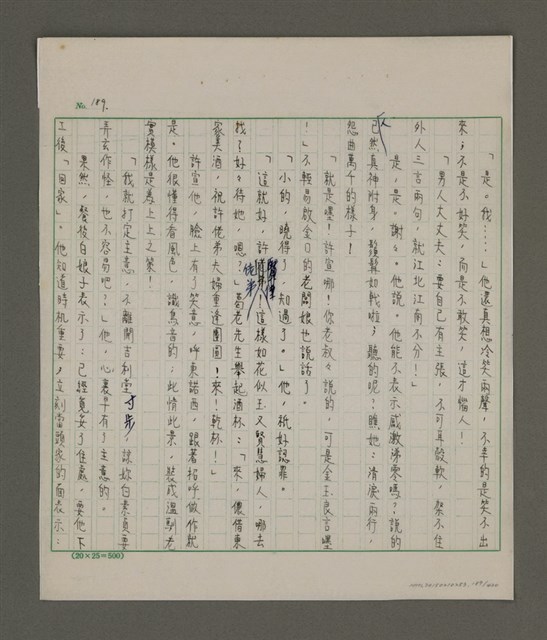 No. 189.
「是。我……」他還真想冷笑兩聲，不幸的是笑不出
來；不是不好笑，而是不敢笑，這才惱人！
「男人大丈夫：要自己有主張，不可耳殼軟，禁不住
外人三言兩句，就江北江南不分！」
是，是。謝謝。他說。他能不表示感激涕零嗎？說的
人已然真神附身，鬚髯如戟啦；聽的呢？瞧她：清淚兩行，
怨曲萬千的樣子！
「就是嘿！許宣哪！你老叔叔說的，可是金玉良言嘿
！」不輕易啟金口的老闆娘也說話了。
「小的，曉得了，知過了。」他，祇好認罪。
「這就好，許賢侄！這樣如花似玉又賢慧婦人，哪去
找？好好待她，嗯？」老先生舉起酒杯：「來，儂借東
家美酒，祝許徒弟夫婦重逢團圓！來！乾杯！」
許宣他，臉上有了笑意，呼東諾西，跟著招呼做作就
是。他很懂得看風色，識鳥音的；此情此景，裝成溫馴老
實模樣是為上上之策！
「我就打定主意，不離開吉利堂寸步，諒妳白素貞要
弄玄作怪，也不容易吧？」他，心裏早有了主意的。
果然，餐後白娘子表示了：已經覓妥了住處，要他下
工後「回家」。他知道時机重要，立刻當頭家的面表示：
(20×25=500)